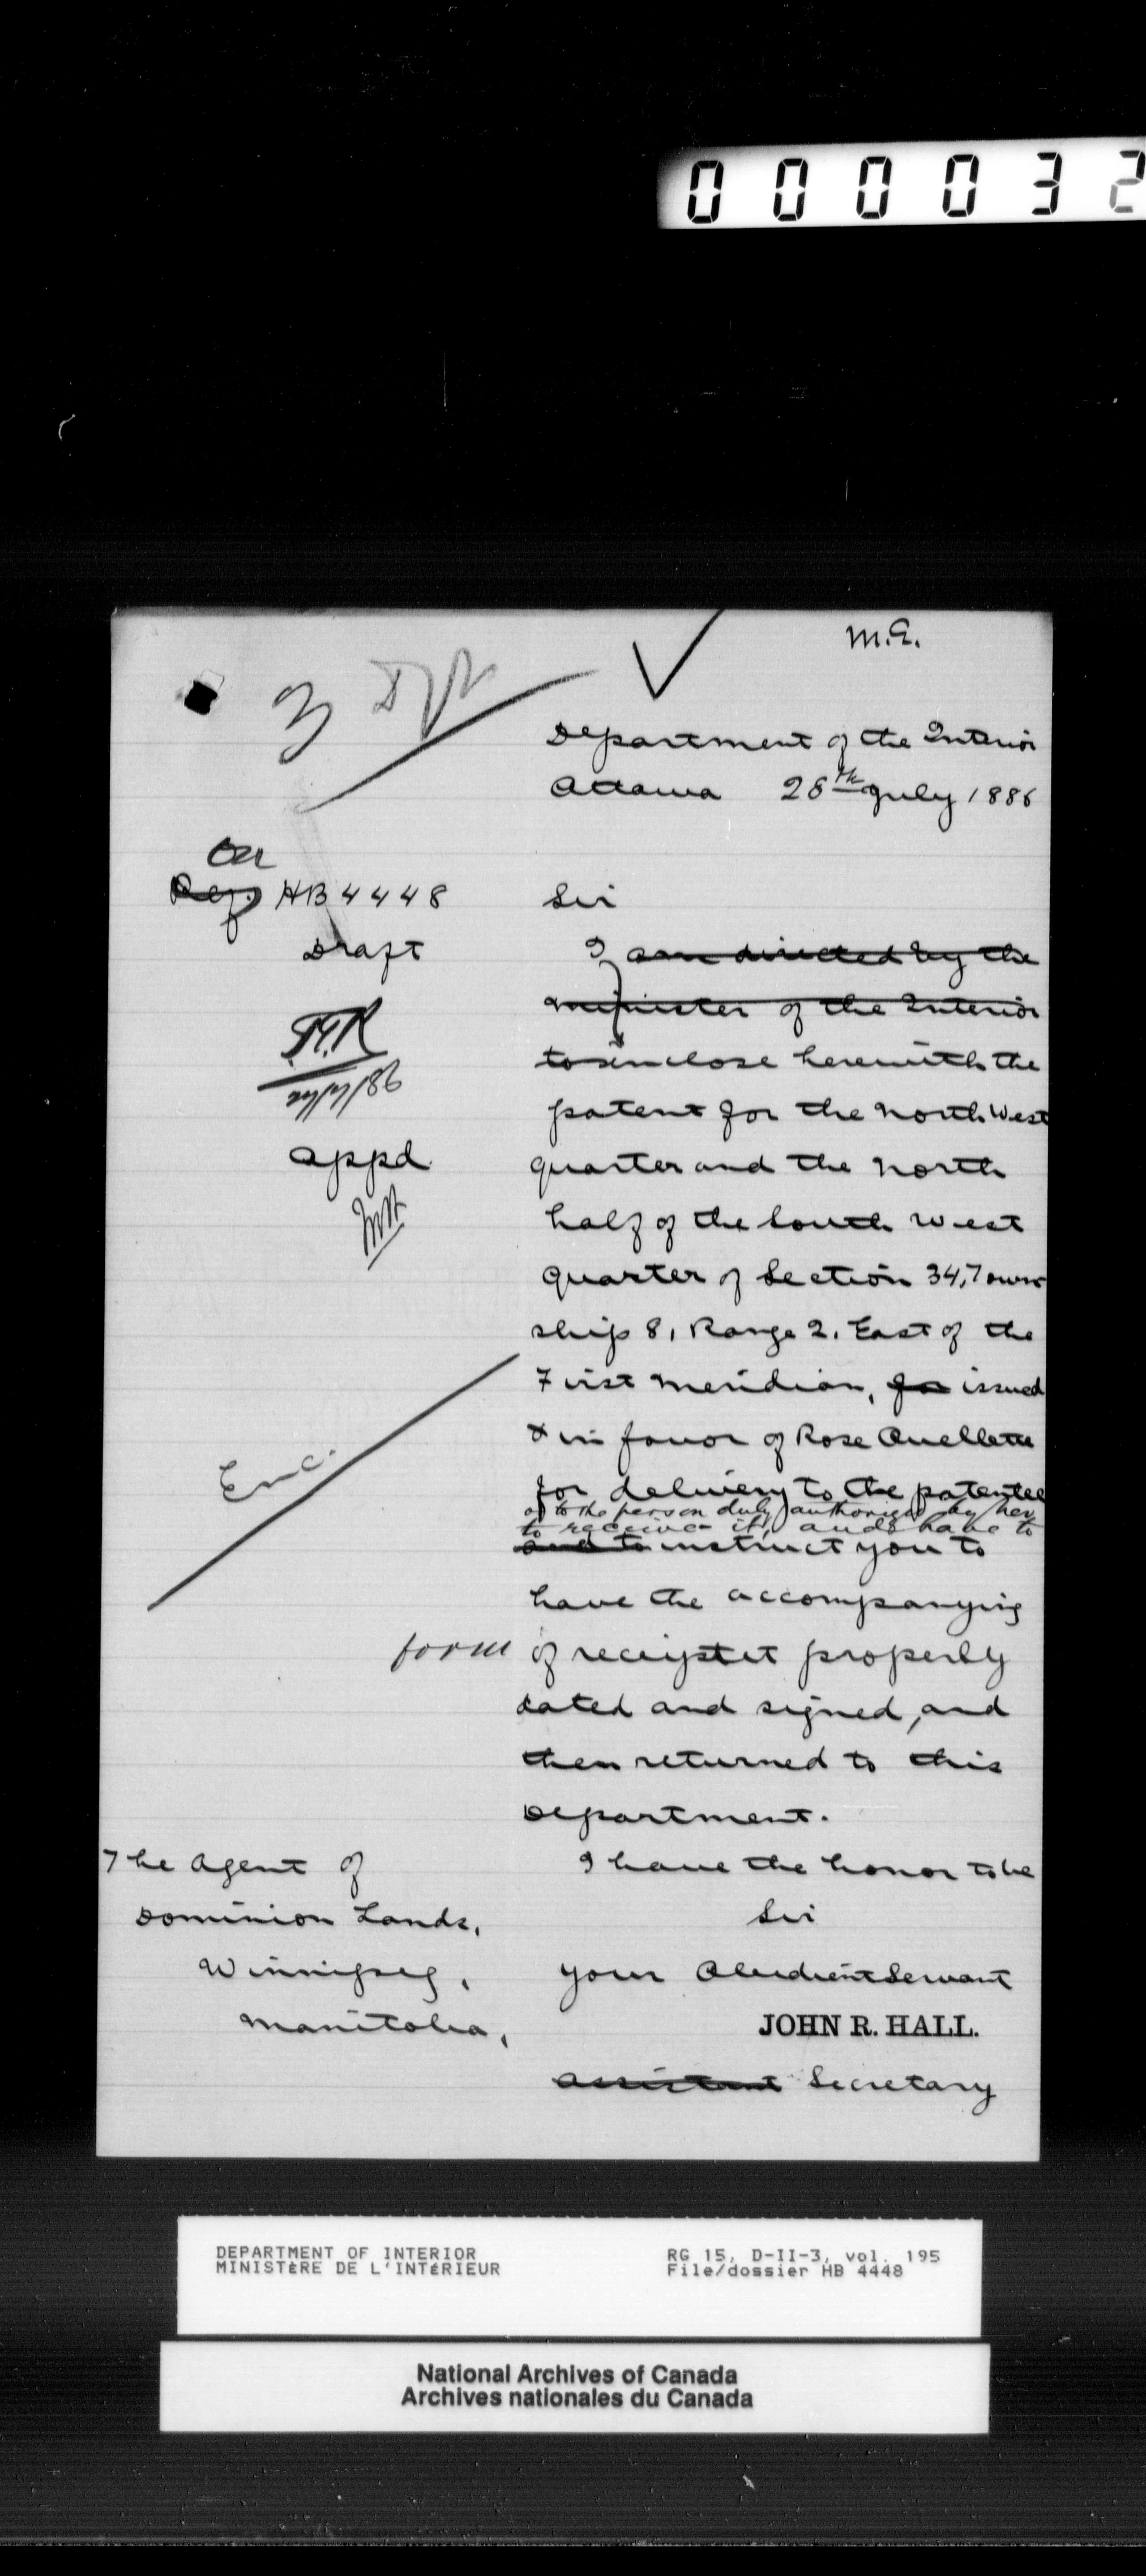 000032
M.E.
Department of the Interior
Ottawa 28th July 1886
On
Ref. HB 4448
Draft
appd
Sir
I am directed by the
Minister of the Interior
to enclose herewith the
patent for the North West
quarter and the North
half of the South West
quarter of Section 34, Town-
ship 8, Range 2. East of the
First Meridian, for issued
in favor of Rose Ouellette
for delivery to the patentee
or to the person duly authorized by her
to receive it, and I have to
and to instruct you to
have the accompanying
form of receipt properly
dated and signed, and
then returned to this
Department.
Enc.
I have the honor to be
Sir
your Obedient Servant
JOHN R. HALL.
Assistant Secretary
The Agent of
Dominion Lands,
Winnipeg,
Manitoba,
DEPARTMENT OF INTERIOR
MINISTÈRE DE L'INTÉRIEUR
RG 15, D-II-3, vol. 195
File/dossier HB 4448
National Archives of Canada
Archives nationales du Canada